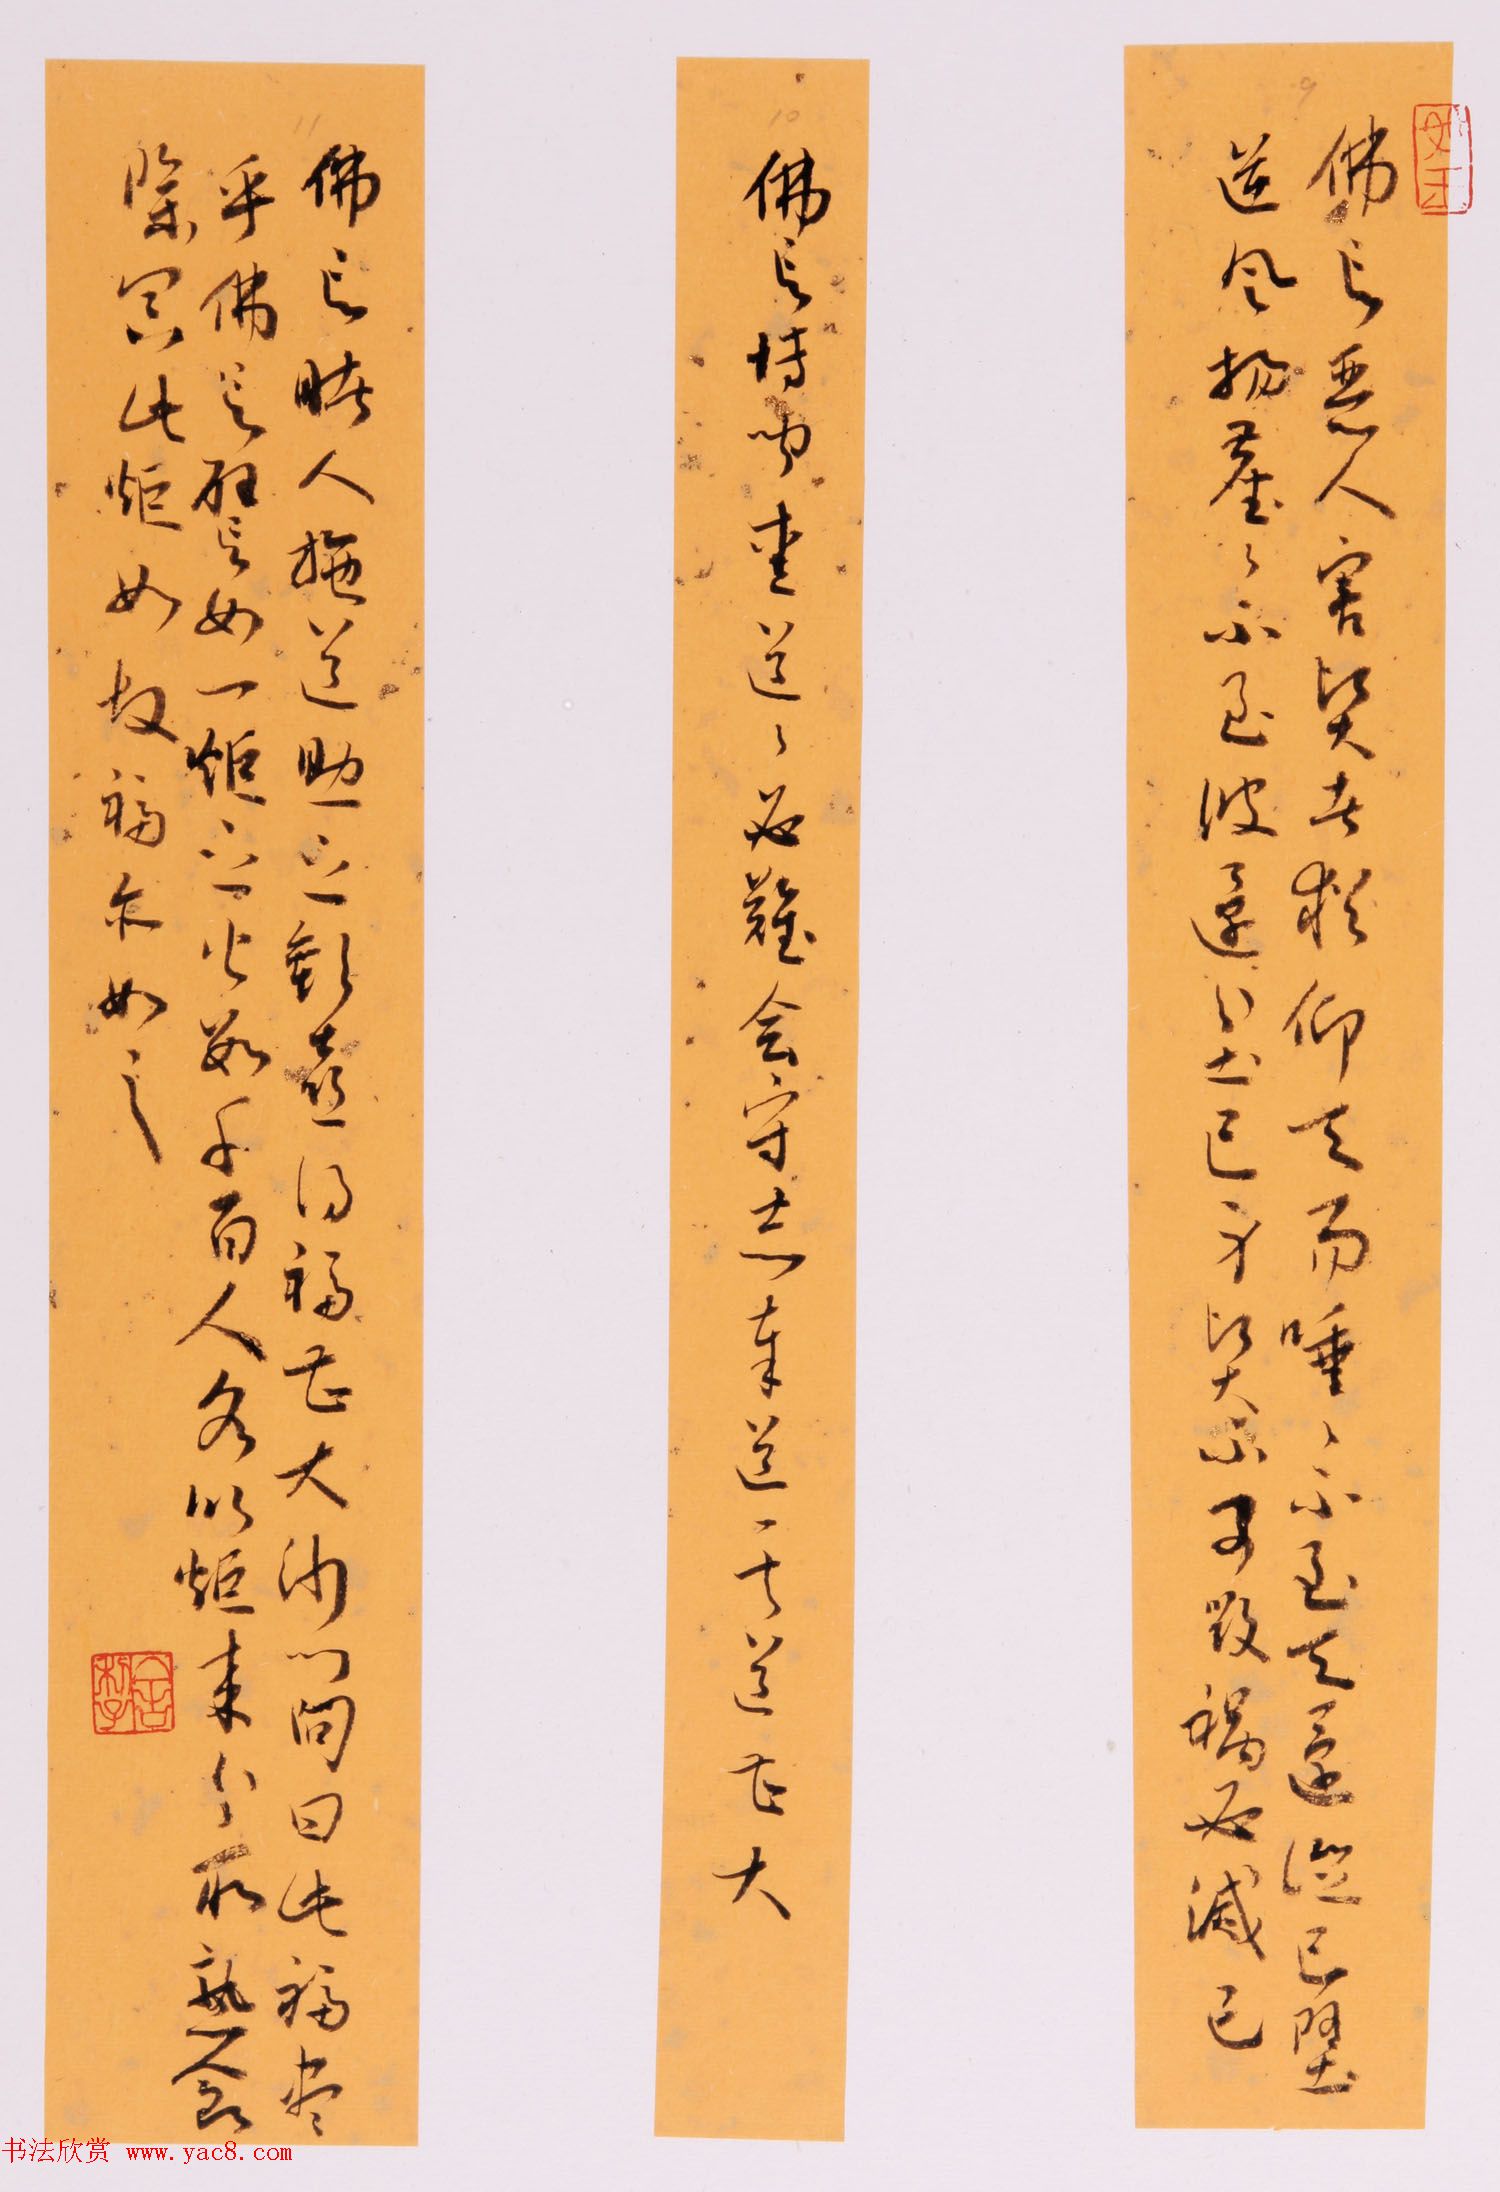 9
佛言惡人害賢者猶仰天而唾々不至天還從己墮
逆風揚塵々不至彼還坌己身賢不可毀禍必滅己
10
佛言博聞愛道々必難會守志奉道其道甚大
11
佛言睹人施道助之歡喜得福甚大沙門問曰此福盡
乎佛言譬如一炬之火數千百人各以炬來分取熟食
除冥此炬如故福亦如之
书法欣赏 www.yac8.com